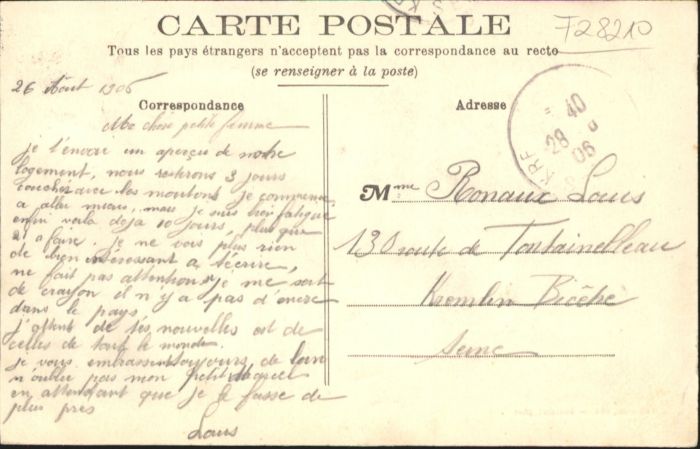 CARTE POSTALE
F28210
Tous les pays étrangers n'acceptent pas la correspondance au recto
(se renseigner à la poste)
26 Aout 1906
Correspondance
Ma chère petite femme
je t'envoie un aperçu de notre
logement, nous resterons 3 jours
couchés avec les moutons je commence
a aller mieux, mais je suis bien fatigué
enfin voila deja 10 jours, plus que
21 a faire. je ne vois plus rien
de bien interessant a t'ecrire,
ne fait pas attention si je me sert
de crayon il n y a pas d'encre
dans le pays
j'attent de tes nouvelles est de
celles de tout le monde.
je vous embrassent toujours de loin
n'oublie pas mon petit Marcel
en attendant que je le fasse de
plus près
Louis
Adresse
40
28 8
06
KRE
Mme Ronaux Louis
130 route de Fontainebleau
Kremlin Bicêtre
Seine